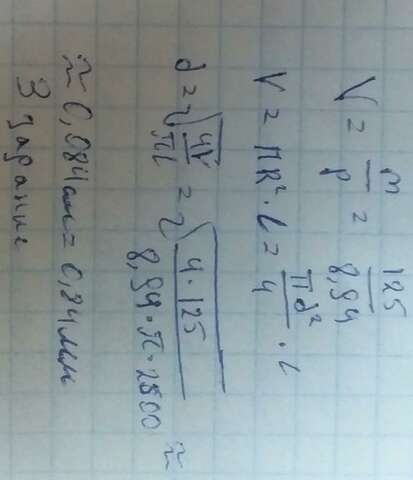 V = m/ρ = 125/8,94
V = πR² · l = πd²/4 · l
d = √(4V/πl) = √(4·125/8,94·π·2500) ≈
≈ 0,084 см = 0,84 мм
3 задание